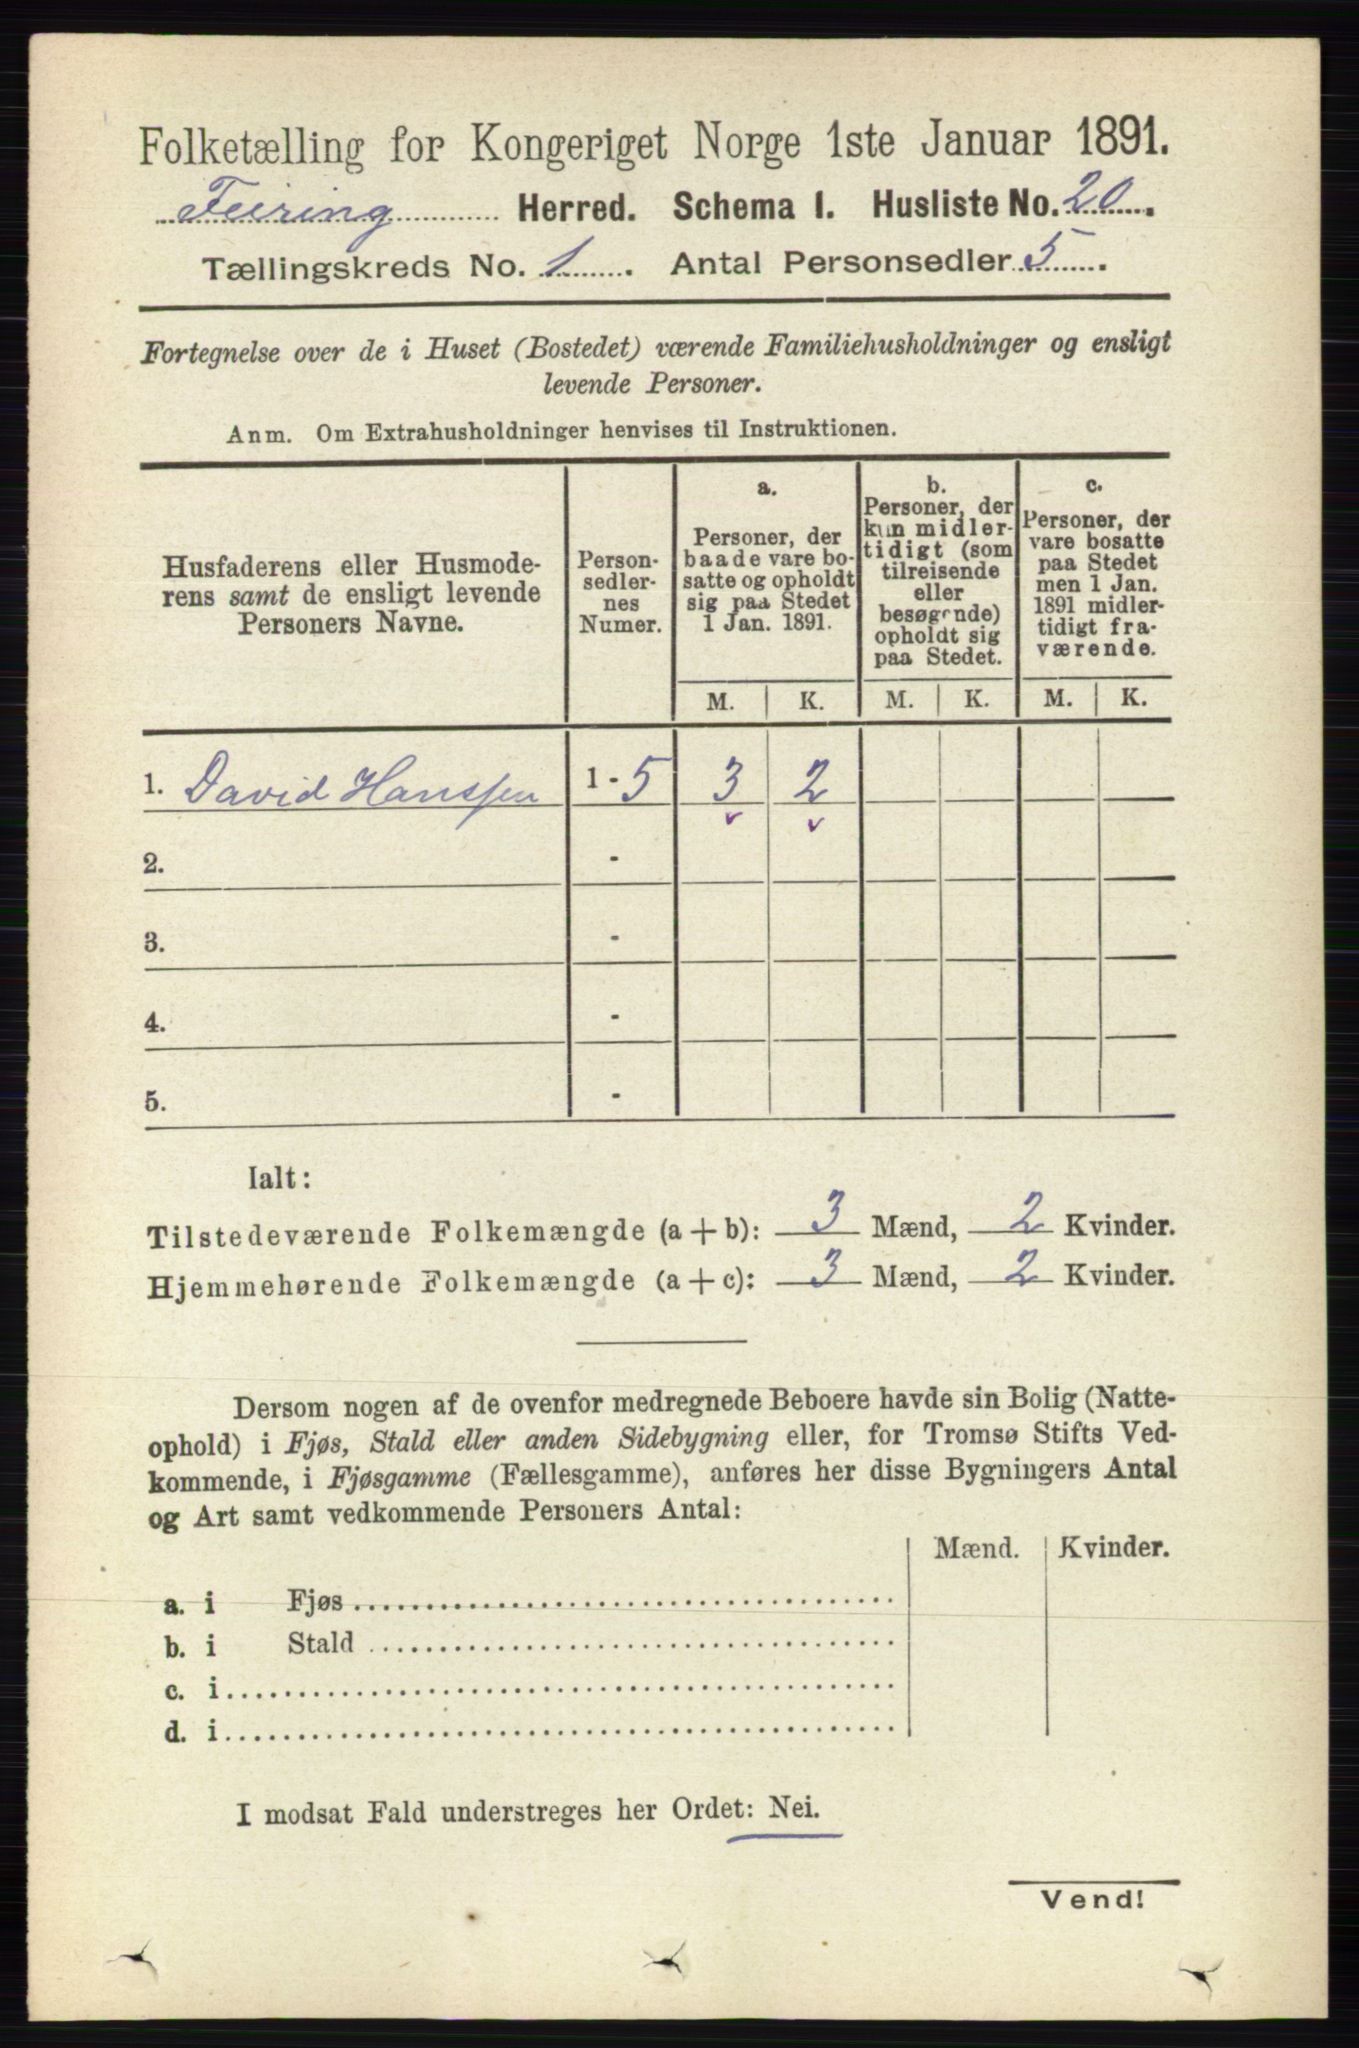 Folketælling for Kongeriget Norge 1ste Januar 1891.
Feiring Herred. Schema I. Husliste No. 20.
Tællingskreds No. 1. Antal Personsedler 5.
Fortegnelse over de i Huset (Bostedet) værende Familiehusholdninger og ensligt
levende Personer.
Anm. Om Extrahusholdninger henvises til Instruktionen.
Husfaderens eller Husmode-
rens samt de ensligt levende
Personers Navne.
Person-
sedler-
nes
Numer.
a.
Personer, der
baade vare bo-
satte og opholdt
sig paa Stedet
1 Jan. 1891.
b.
Personer, der
kun midler-
tidigt (som
tilreisende
eller
besøgende)
opholdt sig
paa Stedet.
c.
Personer, der
vare bosatte
paa Stedet
men 1 Jan.
1891 midler-
tidigt fra-
værende.
M. K. M. K. M. K.
1. David Hanssen 1 - 5 3 2
2. -
3. -
4. -
5. -
Ialt:
Tilstedeværende Folkemængde (a + b): 3 Mænd, 2 Kvinder.
Hjemmehørende Folkemængde (a + c): 3 Mænd, 2 Kvinder.
Dersom nogen af de ovenfor medregnede Beboere havde sin Bolig (Natte-
ophold) i Fjøs, Stald eller anden Sidebygning eller, for Tromsø Stifts Ved-
kommende, i Fjøsgamme (Fællesgamme), anføres her disse Bygningers Antal
og Art samt vedkommende Personers Antal:
Mænd. Kvinder.
a. i Fjøs
b. i Stald
c. i
d. i
I modsat Fald understreges her Ordet: Nei.
Vend!